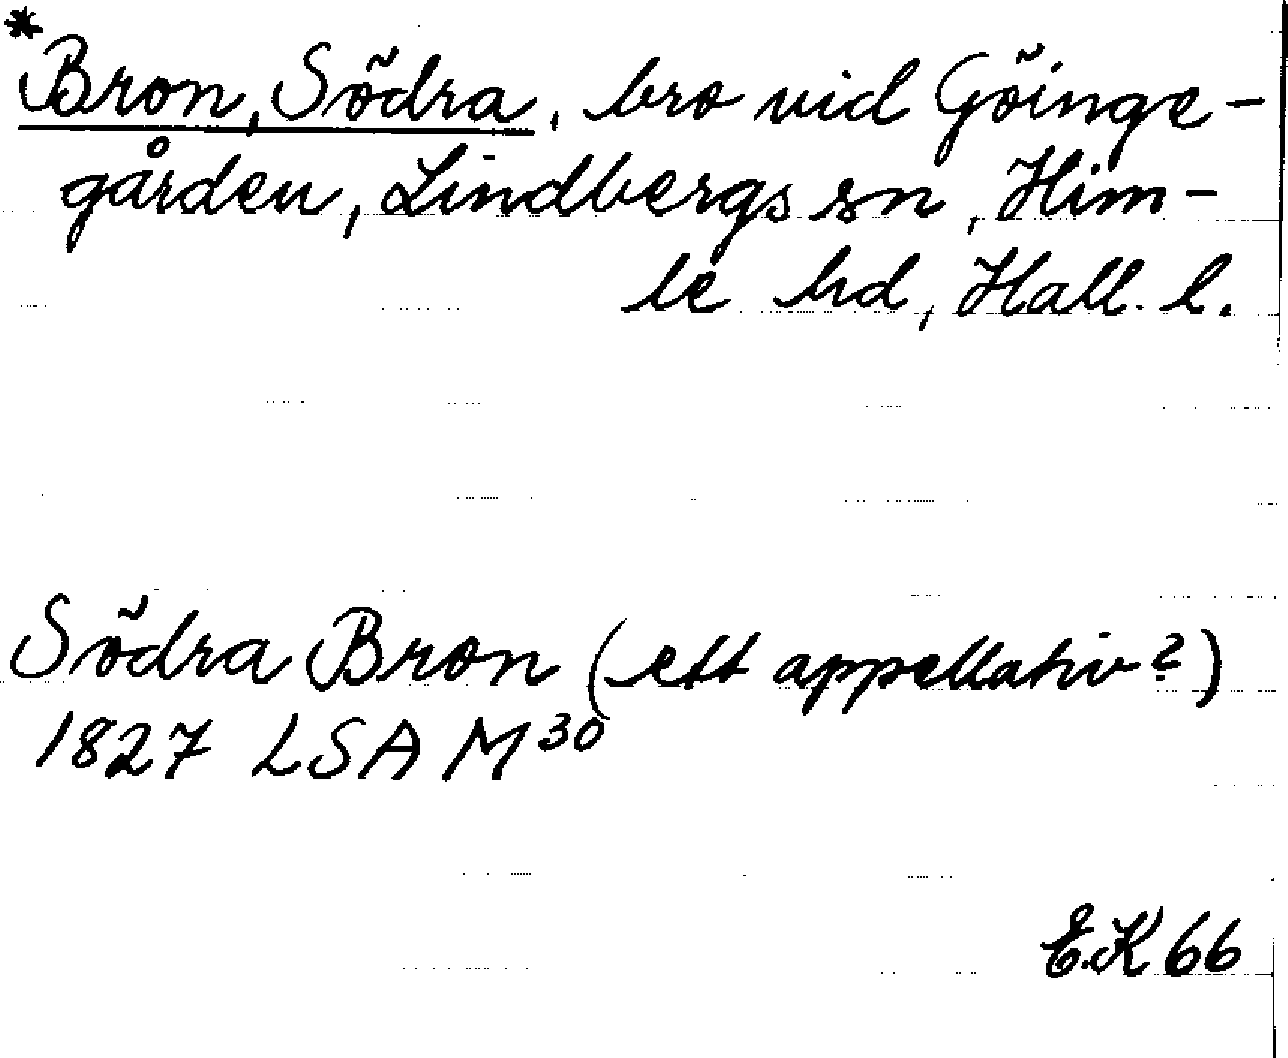 *Bron, Södra, bro vid Göinge-
gården, Lindbergs sn, Him-
le hd, Hall. l.
Södra Bron (ett appellativ?)
1827 LSA M30
E.K 66